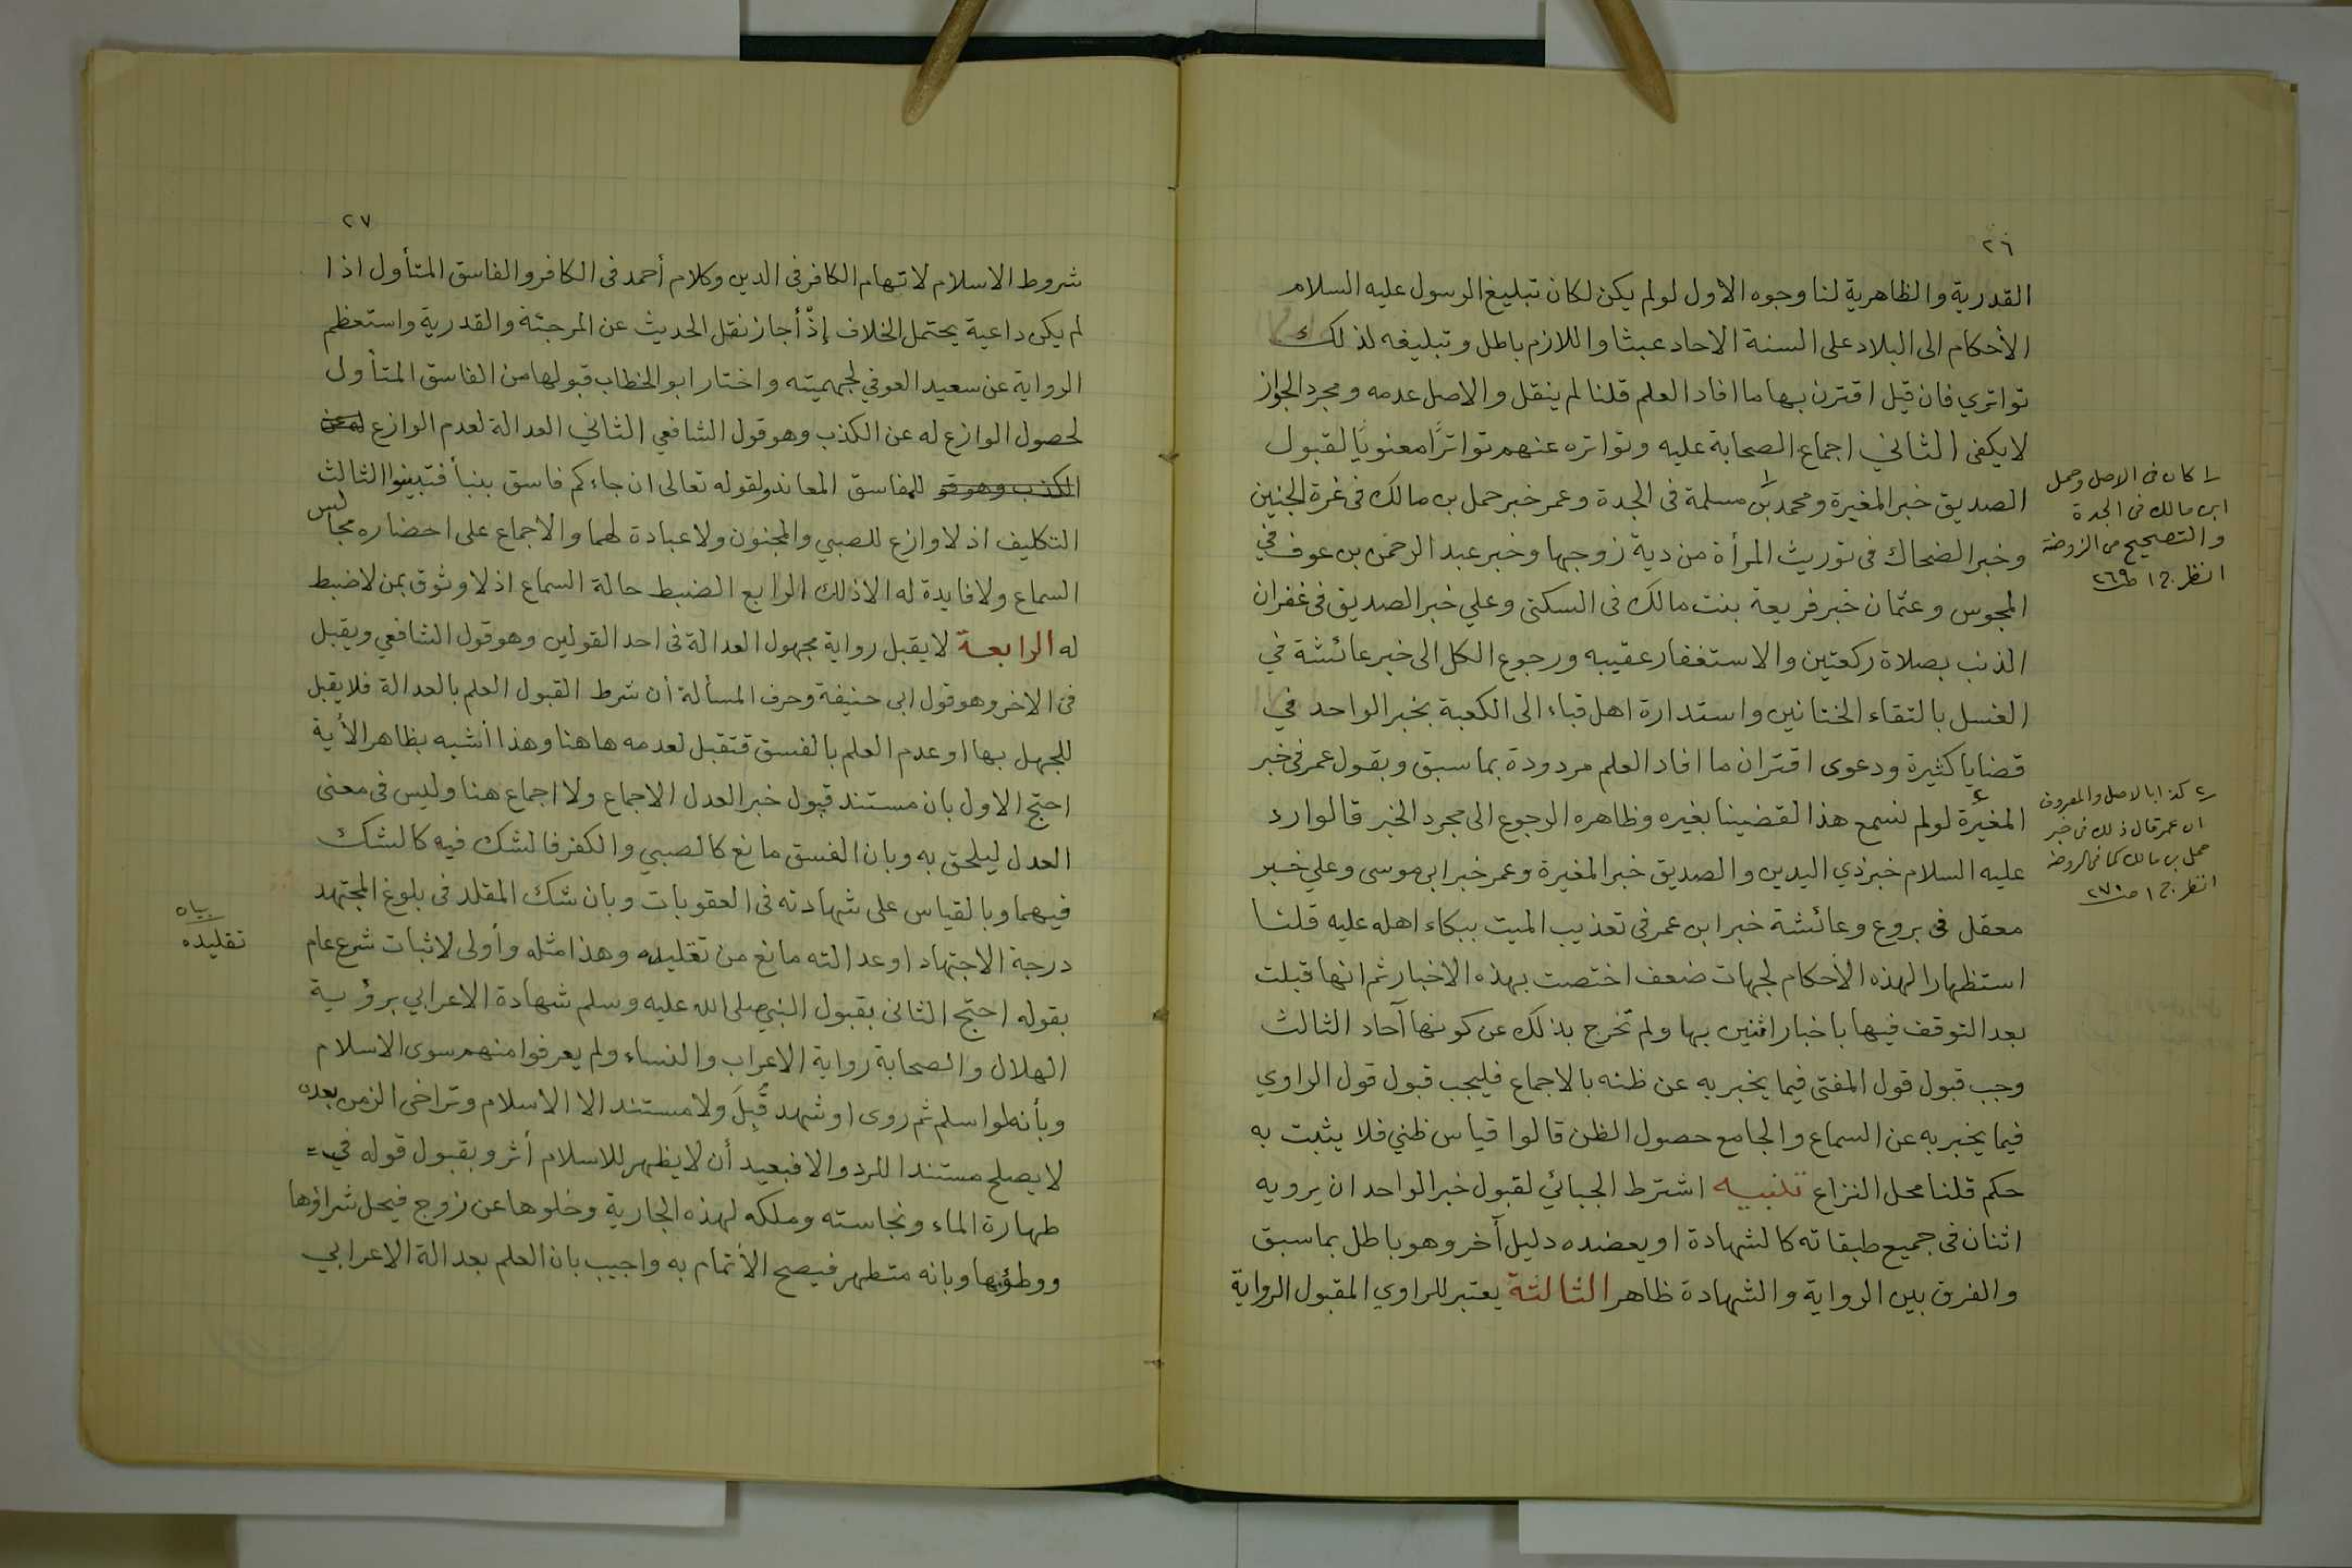 ٢٦
القدرية والظاهرية لنا وجوه الأول لو لم يكن لكان تبليغ الرسول عليه السلام
الأحكام الى البلاد على السنة الاحاد عبثا واللازم باطل وتبليغه لذلك
تواتري فان قيل اقترن بها ما افاد العلم قلنا لم ينقل والاصل عدمه ومجرد الجواز
لا يكفى الثاني اجماع الصحابة عليه وتواتره عنهم تواترًا معنويًا لقبول
الصديق خبر المغيرة ومحمد بن مسلمة فى الجدة وعمر خبر حمل بن مالك فى غرة الجنين
وخبر الضحاك فى توريث المرأة من دية زوجها وخبر عبد الرحمن بن عوف في
المجوس وعثمان خبر فريعة بنت مالك فى السكنى وعلي خبر الصديق فى غفران
الذنب بصلاة ركعتين والاستغفار عقيبه ورجوع الكل الى خبر عائشة في
الغسل بالتقاء الختانين واستدارة اهل قباء الى الكعبة بخبر الواحد في
قضايا كثيرة ودعوى اقتران ما افاد العلم مردودة بما سبق وبقول عمر فى خبر
المغيرة٢ لو لم نسمع هذا لقضينا بغيره وظاهره الرجوع الى مجرد الخبر قالوا رد
عليه السلام خبر ذي اليدين والصديق خبر المغيرة وعمر خبر ابى موسى وعلي خبر
معقل فى بروع وعائشة خبر ابن عمر فى تعذيب الميت ببكاء اهله عليه قلنا
استظهارا لهذه الأحكام لجهات ضعف اختصت بهذه الاخبار ثم انها قبلت
بعد التوقف فيها باخبار اثنين بها ولم تخرج بذلك عن كونها آحاد الثالث
وجب قبول قول المفتى فيما يخبر به عن ظنه بالاجماع فليجب قبول قول الراوي
فيما يخبر به عن السماع والجامع حصول الظن قالوا قياس ظني فلا يثبت به
حكم قلنا محل النزاع تنبيه اشترط الجبائي لقبول خبر الواحد ان يرويه
اثنان فى جميع طبقاته كالشهادة او يعضده دليل آخر وهو باطل بما سبق
والفرق بين الرواية والشهادة ظاهر الثالثة يعتبر للراوي المقبول الرواية
١/ كان فى الاصل وحمل
ابن مالك فى الجدة
والتصحيح من الروضة
انظر ج ١ ص ٢٦٩
٢/ كذا بالاصل والمعروف
ان عمر قال ذلك فى خبر
حمل بن مالك كما فى الروضة
انظر ج ١ ص ٢٧٠
٢٧
شروط الاسلام لاتهام الكافر فى الدين وكلام أحمد فى الكافر والفاسق المتأول اذا
لم يكن داعية يحتمل الخلاف إذْ أجاز نقل الحديث عن المرجئة والقدرية واستعظم
الرواية عن سعيد العوفي لجهميته واختار ابو الخطاب قبولها من الفاسق المتأول
لحصول الوازع له عن الكذب وهو قول الشافعي الثاني العدالة لعدم الوازع له عن
الكذب وهو قو للفاسق المعاند ولقوله تعالى ان جاءكم فاسق بنبأ فتبينوا الثالث
التكليف اذ لا وازع للصبي والمجنون ولا عبادة لهما والاجماع على احضاره مجالس
السماع ولا فايدة له الا ذلك الرابع الضبط حالة السماع اذ لا وثوق بمن لا ضبط
له الرابعة لا يقبل رواية مجهول العدالة فى احد القولين وهو قول الشافعي ويقبل
فى الاخر وهو قول ابى حنيفة وحرف المسألة أن شرط القبول العلم بالعدالة فلا يقبل
للجهل بها او عدم العلم بالفسق فتقبل لعدمه هاهنا وهذا أشبه بظاهر الأية
احتج الاول بان مستند قبول خبر العدل الاجماع ولا اجماع هنا وليس فى معنى
العدل ليلحق به وبان الفسق مانع كالصبي والكفر فالشك فيه كالشك
فيهما وبالقياس على شهادته فى العقوبات وبان شك المقلد فى بلوغ المجتهد
درجة الاجتهاد او عدالته مانع من تقليده وهذا مثله وأولى لاثبات شرع عام
بقوله احتج الثانى بقبول النبي صلى الله عليه وسلم شهادة الاعرابي برؤية
الهلال والصحابة رواية الاعراب والنساء ولم يعرفوا منهم سوى الاسلام
وبأنه لو اسلم ثم روى او شهد قُبِلَ ولا مستند الا الاسلام وتراخى الزمن بعده
لا يصلح مستندا للرد والا فبعيد أن لا يظهر للاسلام أثر وبقبول قوله في =
طهارة الماء ونجاسته وملكه لهذه الجارية وخلوها عن زوج فيحل شراؤها
ووطؤها وبانه متطهر فيصح الأتمام به واجيب بان العلم بعدالة الاعرابي
بيان
تقليده